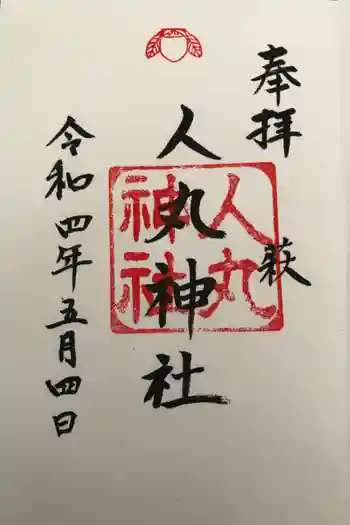 奉拝
萩
人丸神社
人丸
神社
令和四年五月四日